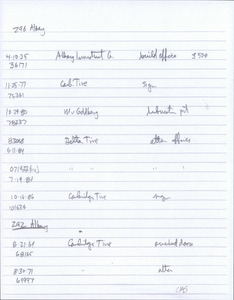 296 Albany
4-10-35 Albany Investment Co. build offices $500
36171
11-25-77 Camb. Tire sign
75361
10-24-80 Mc Goldberg lubrication pit
78237
83008 Delta Tire alter offices
6-11-84
" "
7-19-84
10-16-86 Cambridge Tire sign
292 Albany
8-21-69 Cambridge Tire overhead doors
68165
8-30-71 " " alter
69997